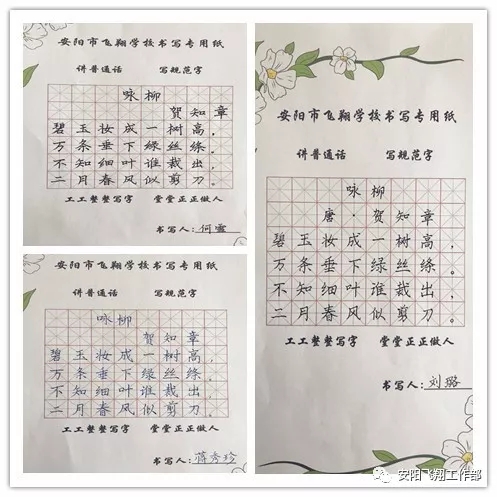 安阳市飞翔学校书写专用纸
讲普通话 写规范字
咏柳
贺知章
碧玉妆成一树高，
万条垂下绿丝绦。
不知细叶谁裁出，
二月春风似剪刀。
工工整整写字 堂堂正正做人
书写人：何雪
安阳市飞翔学校书写专用纸
讲普通话 写规范字
咏柳
贺知章
碧玉妆成一树高，
万条垂下绿丝绦。
不知细叶谁裁出，
二月春风似剪刀。
工工整整写字 堂堂正正做人
书写人：蒋秀珍
安阳市飞翔学校书写专用纸
讲普通话 写规范字
咏柳
唐·贺知章
碧玉妆成一树高，
万条垂下绿丝绦。
不知细叶谁裁出，
二月春风似剪刀。
工工整整写字 堂堂正正做人
书写人：刘璐
安阳飞翔工作部